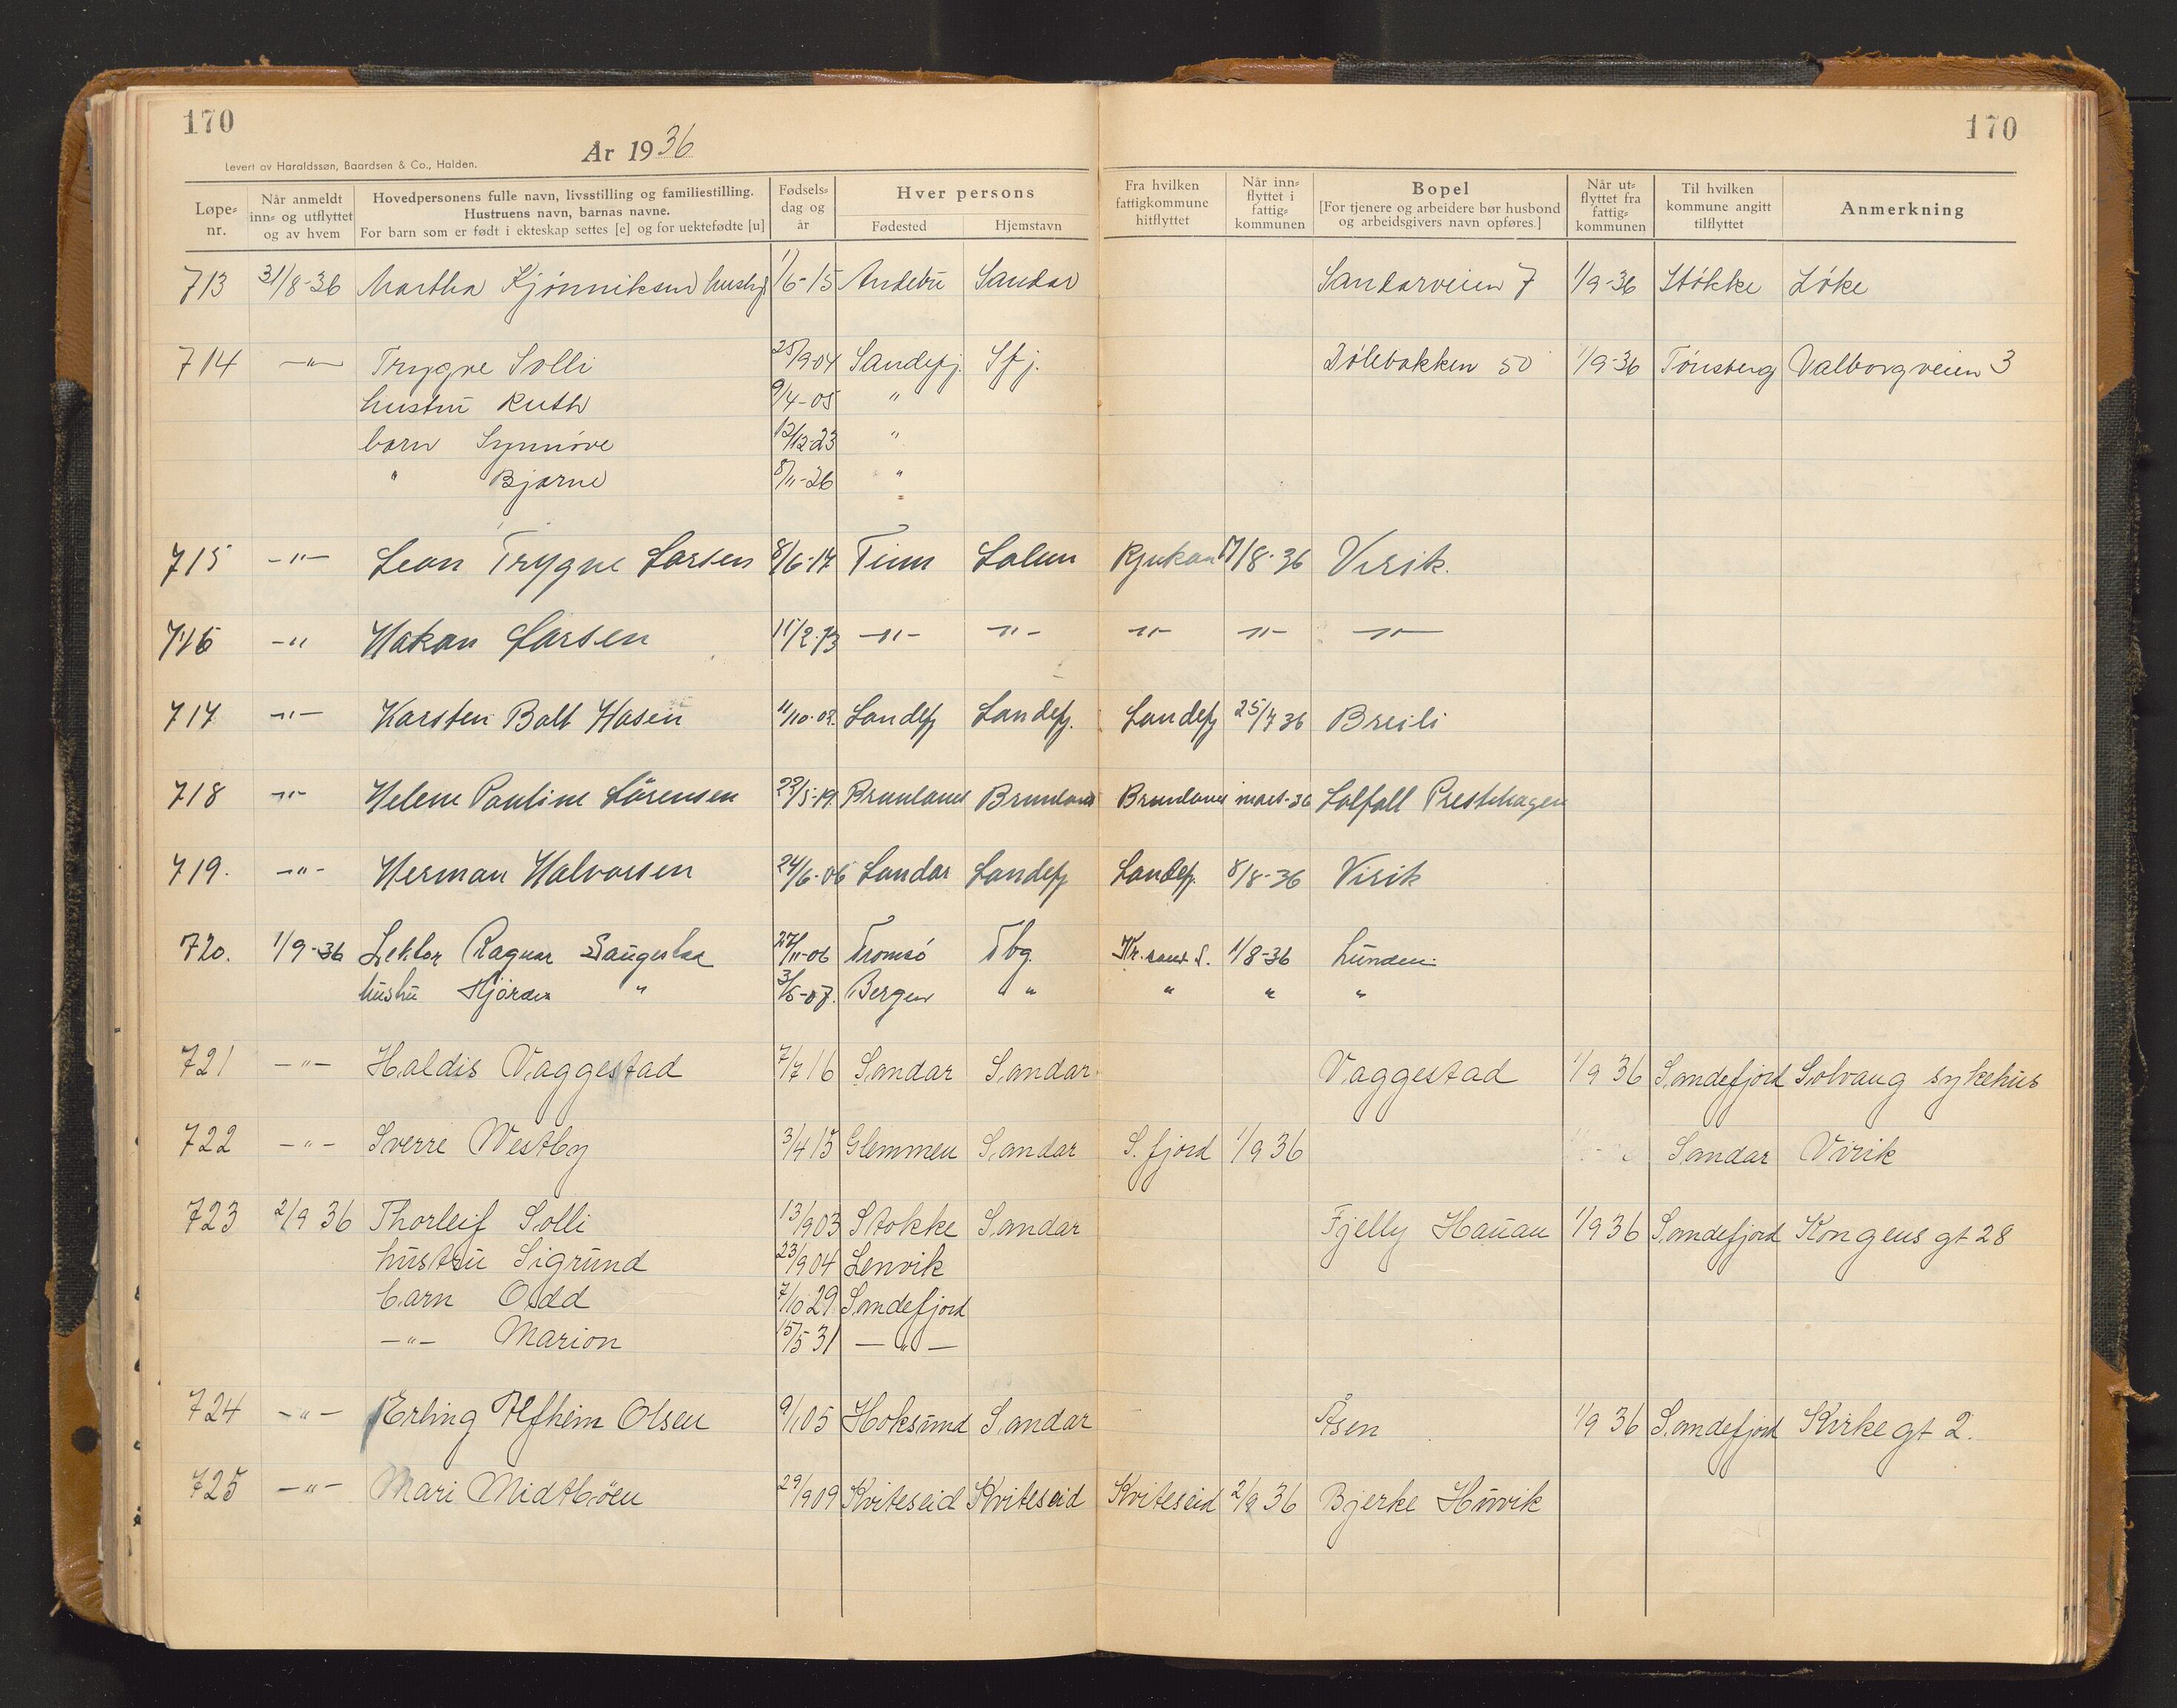 170
170
År 1936
Levert av Haraldssøn, Baardsen & Co., Halden.
Løpe-nr. Når anmeldt inn- og utflyttet og av hvem Hovedpersonens fulle navn, livsstilling og familiestilling. Hustruens navn, barnas navne. For barn som er født i ekteskap settes [e] og for uektefødte [u] Fødsels-dag og år Hver persons Fødested Hjemstavn Fra hvilken fattigkommune hitflyttet Når inn-flyttet i fattig-kommunen Bopel [For tjenere og arbeidere bør husbond og arbeidsgivers navn opføres.] Når ut-flyttet fra fattig-kommunen Til hvilken kommune angitt tilflyttet Anmerkning
713 31/8-36 Martha Kjønniksen hushj. 1/6-15 Andebu Sandar Sandarveien 7 1/9-36 Stokke Løke
714 -"- Trygve Solli 25/9 04 Sandefj. Sfj. Dølebakken 50 1/9-36 Tønsberg Valborgveien 3
hustru Ruth 9/4-05 "
barn Synnøve 12/12-23 "
" Bjarne 8/11-26 "
715 -"- Leon Trygve Larsen 8/6-17 Tinn Solum Rjukan 17/8-36 Virik.
716 -" Hakon Larsen 15/2-13 -"- -"- -"- -"- -"-
717 -"- Karsten Balt Hasen 11/10-02 Sandefj Sandefj. Sandefj 25/7 36 Breili
718 -"- Helene Pauline Sörensen 22/5-19 Brunlanes Brunlanes Brunlanes mars-36 Solfall Prestehagen
719. -"- Herman Halvorsen 24/6-06 Sandar Sandefj Sandefj. 8/8-36 Virik
720. 1/9-36 Lektor Ragnar Saugestad 27/11-06 Tromsø Tbg. Kr.sand S. 1/8-36 Lunden
hustru Hjørdis " 3/5-07. Bergen " " " "
721 -"- Haldis Vaggestad 7/7 16 Sandar Sandar Vaggestad 1/9 36 Sandefjord Solvang sykehus
722 -"- Sverre Westby 3/4 15 Glemmen Sandar S.fjord 1/9 36 Sandar Virik
723 2/9 36 Thorleif Solli 13/9 03 Stokke Sandar Fjelly Hauan 1/9 36 Sandefjord Kongens gt 28
hustru Sigrund 23/9 04 Lenvik
barn Odd 7/10 29 Sandefjord
-"- Marion 15/5 31 -"-
724 -"- Erling Alfheim Olsen 9/1 05 Hoksund Sandar Åsen 1/9 36 Sandefjord Kirkegt 2.
725 -"- Mari Midtbøen 29/9 09 Kviteseid Kviteseid Kviteseid 2/9 36 Bjerke Huvik